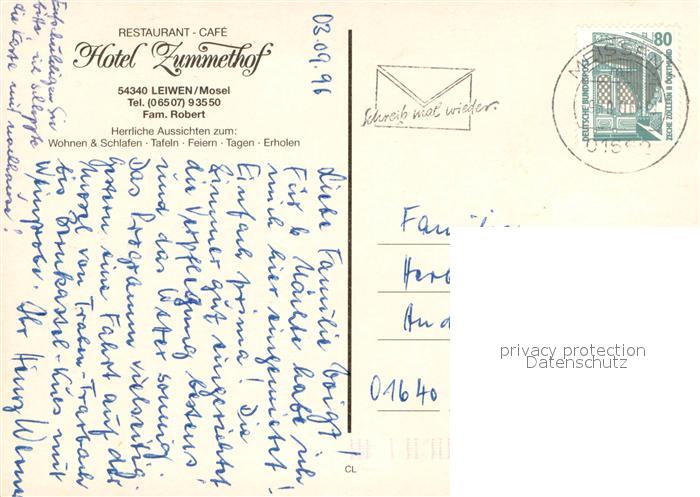 RESTAURANT - CAFÉ
Hotel Zummethof
54340 LEIWEN/Mosel
Tel. (0 65 07) 9 35 50
Fam. Robert
Herrliche Aussichten zum:
Wohnen & Schlafen · Tafeln · Feiern · Tagen · Erholen
03.09.96
Liebe Familie Voigt!
Für 6 Nächte habe ich
mich hier eingemietet!
Einfach prima! Die
Zimmer gut eingerichtet
die Verpflegung bestens
und das Wetter sonnig.
Das Programm vielseitig.
Gestern eine Fahrt auf der
Mosel von Traben-Trarbach
bis Bernkastel-Kues mit
Weinprobe. Ihr Heinz Werner
Entschuldigen Sie
bitte, ich schleppte
die Karte mit nachhause!
Schreib mal wieder.
MEISSEN
01662
80
DEUTSCHE BUNDESPOST
ZECHE ZOLLERN II DORTMUND
Famili
Herb
And
01640
privacy protection
Datenschutz
CL